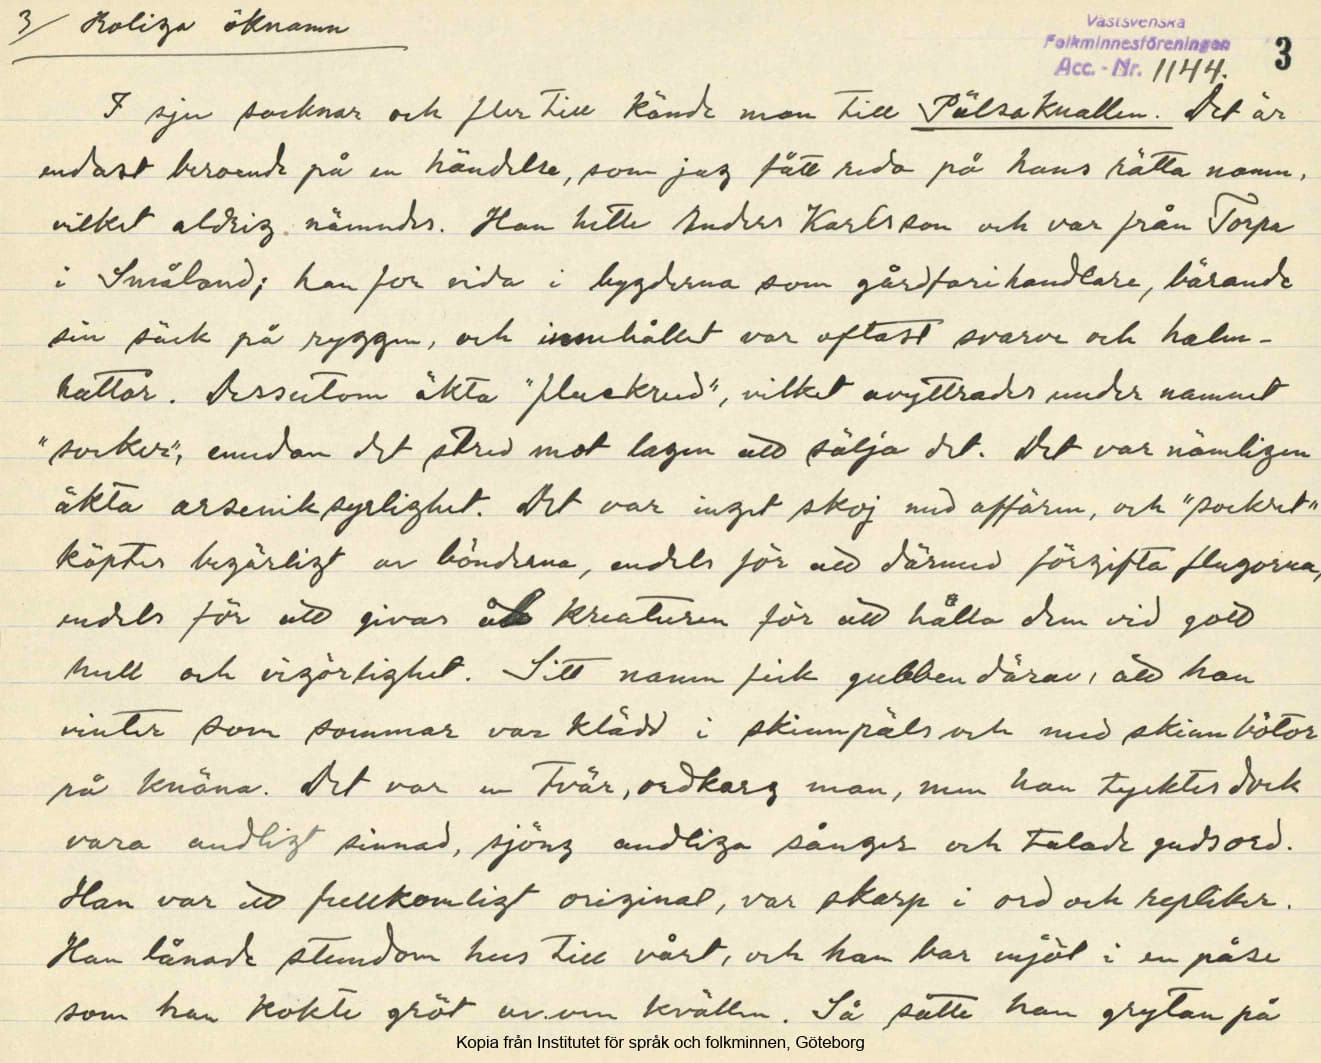 3/ Roliga öknamn
Västsvenska
Folkminnesföreningen
Acc. - Nr. 1144.
3
I sju socknar och fler till kände man till Pälsaknallen. Det är
endast beroende på en händelse, som jag fått reda på hans rätta namn,
vilket aldrig nämndes. Han hette Anders Karlsson och var från Torpa
i Småland; han for vida i bygderna som gårdfarihandlare, bärande
sin säck på ryggen, och innehållet var oftast svarve och halm-
hattar. Dessutom äkta "fluckrud", vilket avyttrades under namnet
"socker", emedan det stred mot lagen att sälja det. Det var nämligen
äkta arseniksyrlighet. Det var inget skoj med affären, och "sockret"
köptes begärligt av bönderna, endels för att därmed förgifta flugorna,
endels för att givas åt kreaturen för att hålla dem vid gott
hull och vigörlighet. Sitt namn fick gubben därav, att han
vinter som sommar var klädd i skinnpäls och med skinnbötor
på knäna. Det var en tvär, ordkarg man, men han tycktes dock
vara andligt sinnad, sjöng andliga sånger och talade gudsord.
Han var ett fullkomligt original, var skarp i ord och repliker.
Han lånade stundom hus till vårt, och han bar mjöl i en påse
som han kokte gröt av om kvällen. Så satte han grytan på
Kopia från Institutet för språk och folkminnen, Göteborg